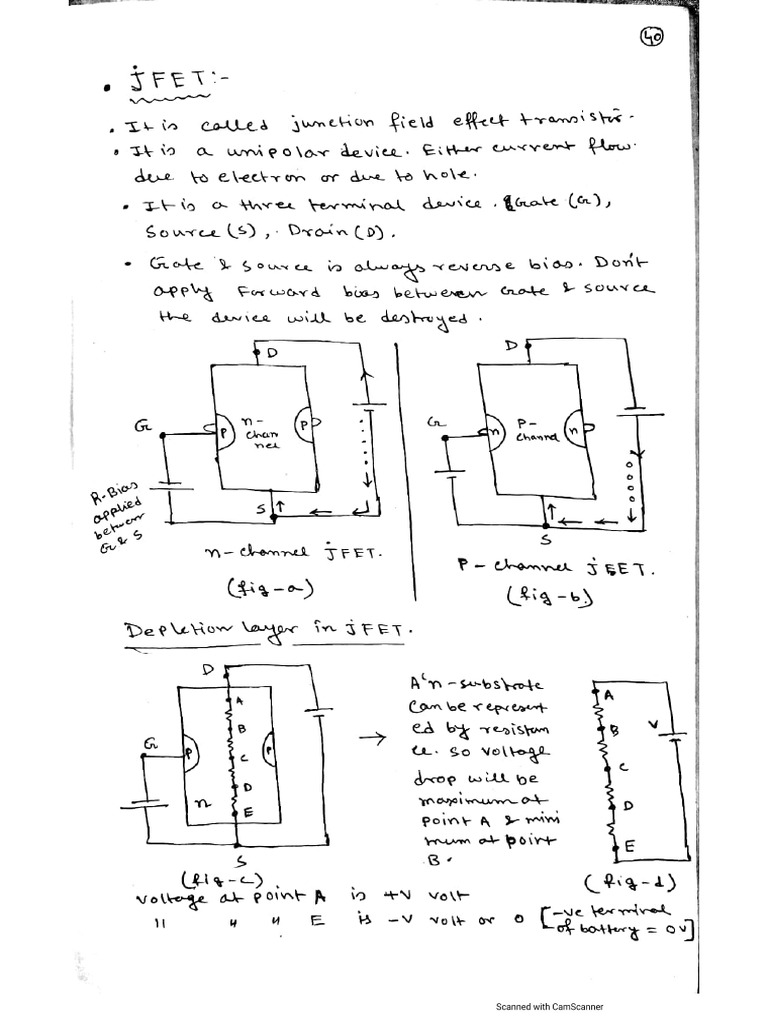 40
• JFET:-
• It is called junction field effect transistor.
• It is a unipolar device. Either current flow
due to electron or due to hole.
• It is a three terminal device. Gate (G),
Source (S), Drain (D).
• Gate & source is always reverse bias. Don't
apply Forward bias between Gate & source
the device will be destroyed.
D
G
P
n-
chan
nel
P
S
R-Bias
applied
between
G & S
n-channel JFET.
(fig-a)
D
G
n
P-
channel
n
S
P-channel JFET.
(fig-b)
Depletion layer in JFET.
D
A
B
G
P
C
P
n
D
E
S
(fig-c)
→ A 'n-substrate
can be represent
ed by resistan
ce. so voltage
drop will be
maximum at
point A & mini
mum at point
B.
A
B
V
C
D
E
(fig-d)
voltage at point A is +V volt
" " " E is -V volt or 0 [-ve terminal
of battery = 0V]
Scanned with CamScanner